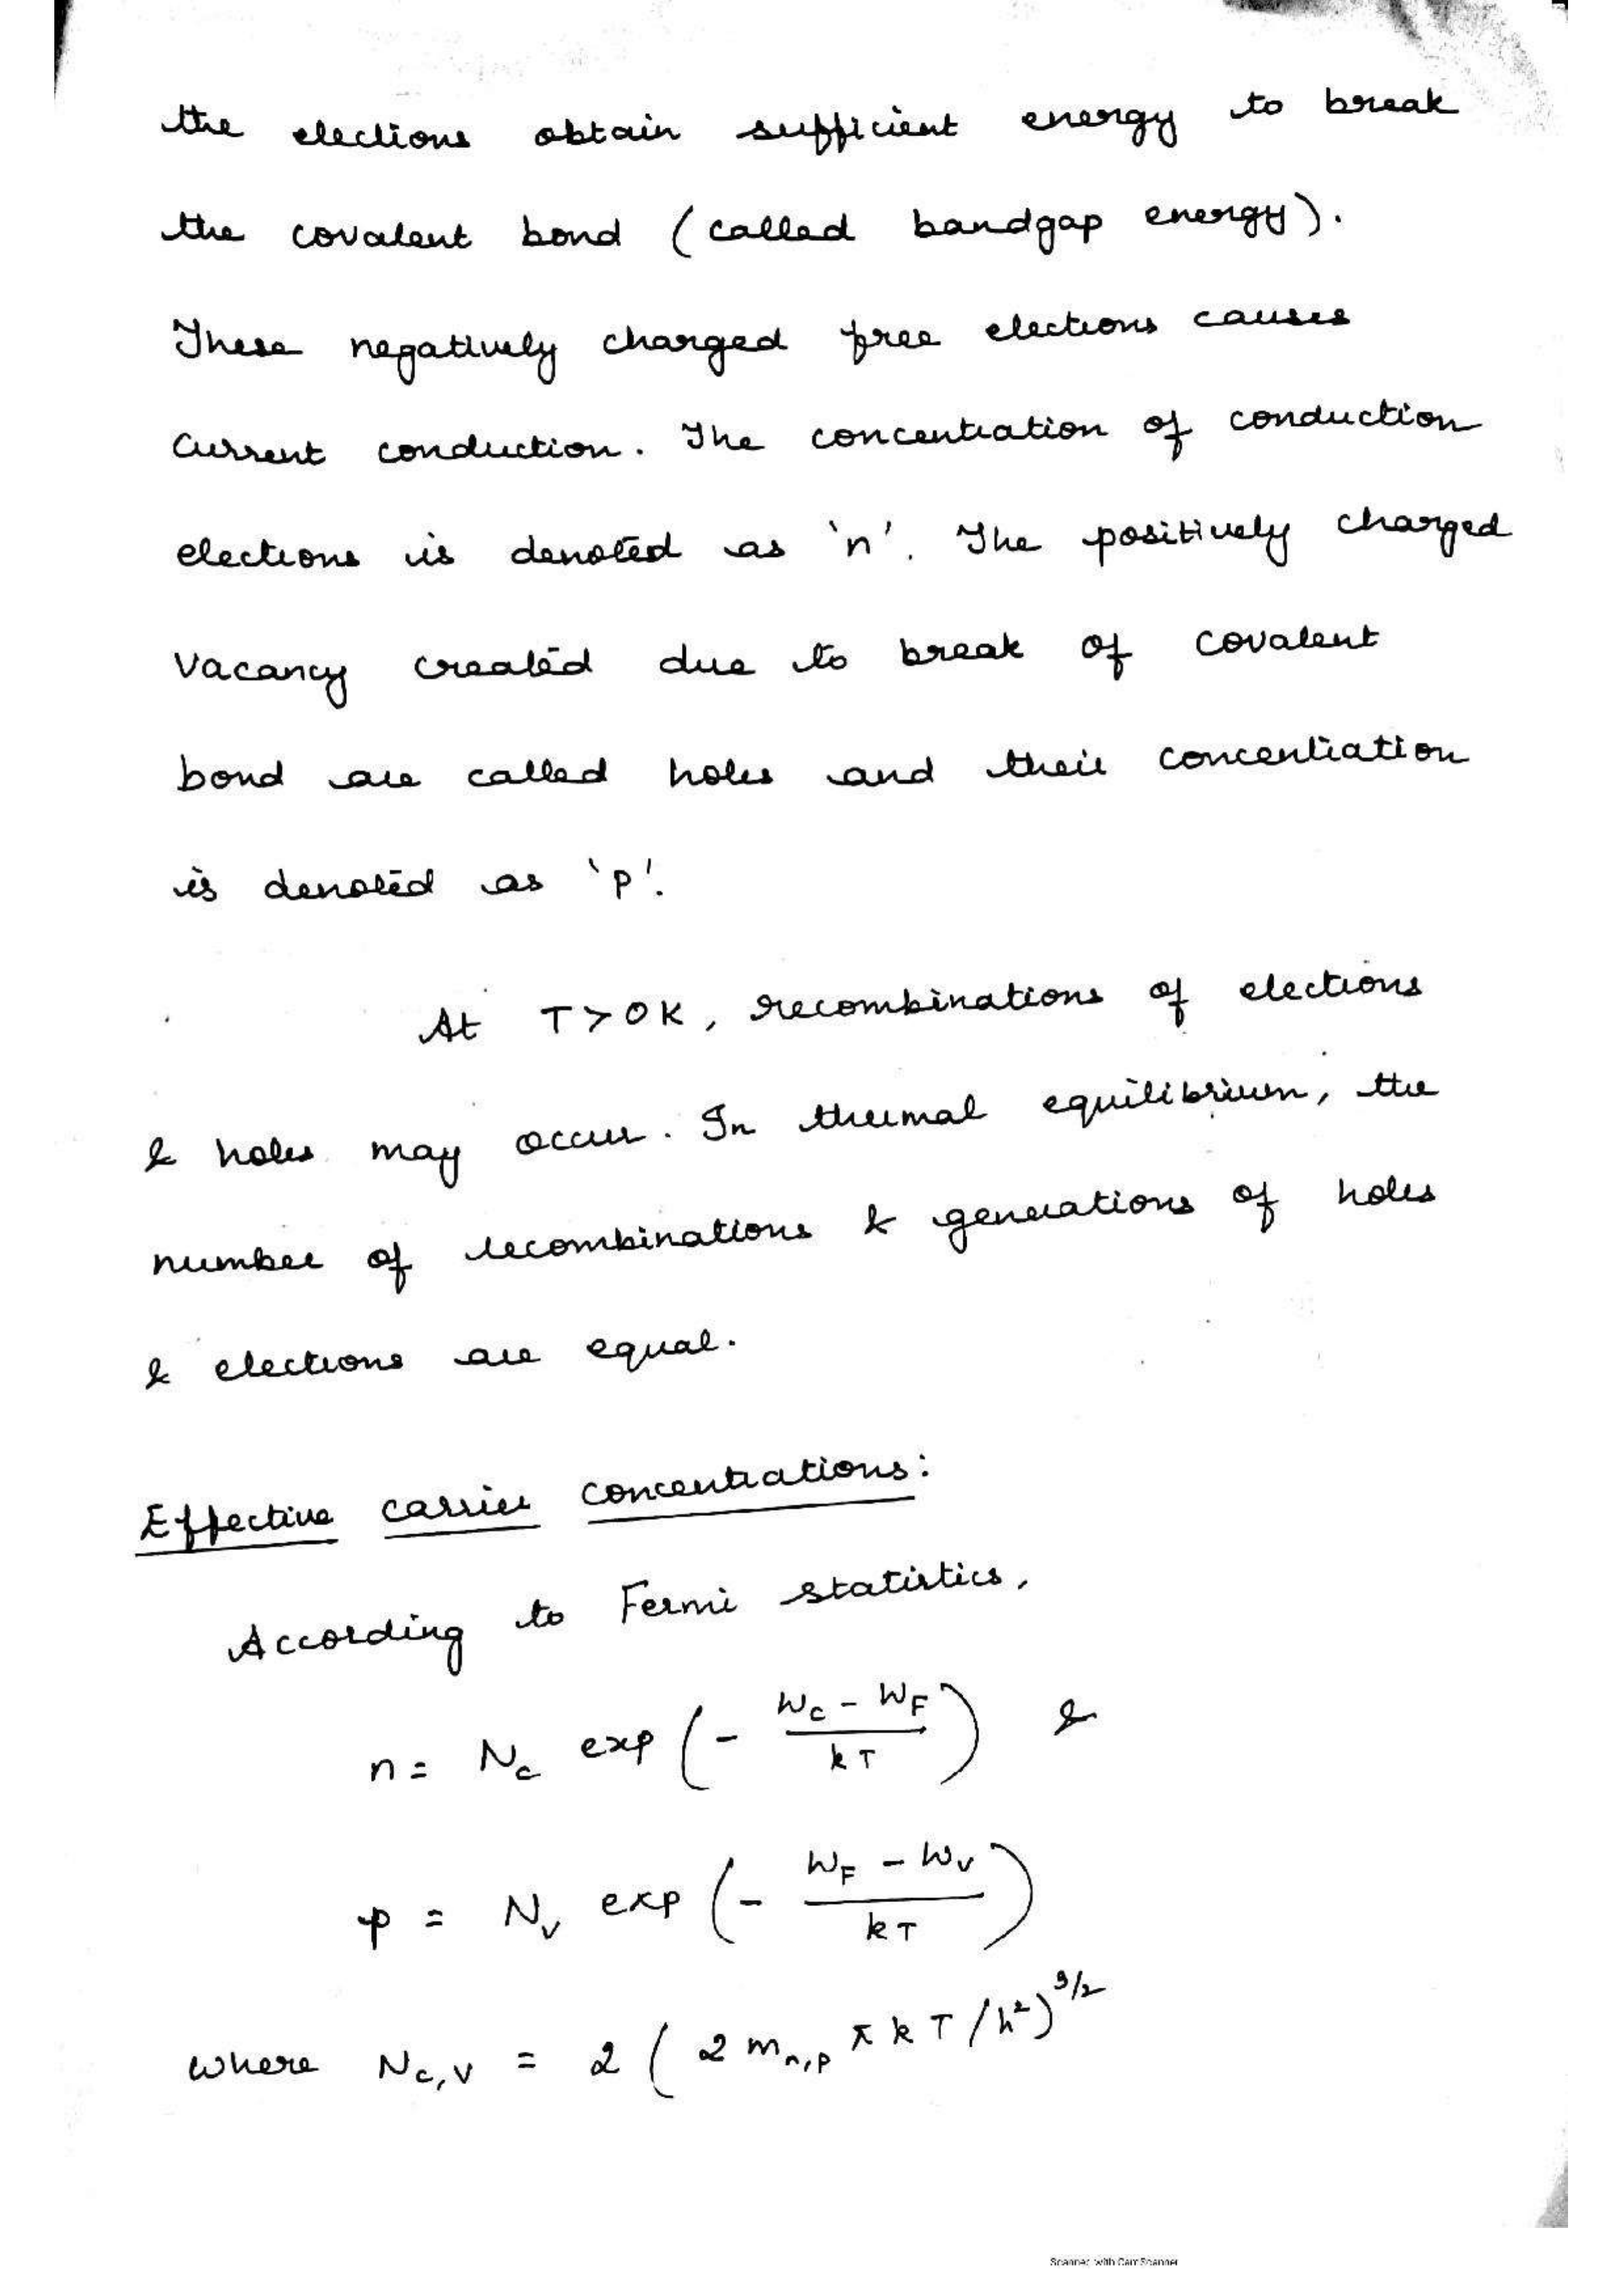 the electrons obtain sufficient energy to break
the covalent bond (called bandgap energy).
These negatively charged free electrons causes
current conduction. The concentration of conduction
electrons is denoted as 'n'. The positively charged
vacancy created due to break of covalent
bond are called holes and their concentration
is denoted as 'p'.
At T > 0K, recombinations of electrons
& holes may occur. In thermal equilibrium, the
number of recombinations & generations of holes
& electrons are equal.
Effective carrier concentrations:
According to Fermi statistics,
n = N_c exp (- (W_c - W_F)/(kT)) &
p = N_v exp (- (W_F - W_v)/(kT))
where N_c,v = 2 (2 m_n,p π k T / h²)^3/2
Scanned with CamScanner